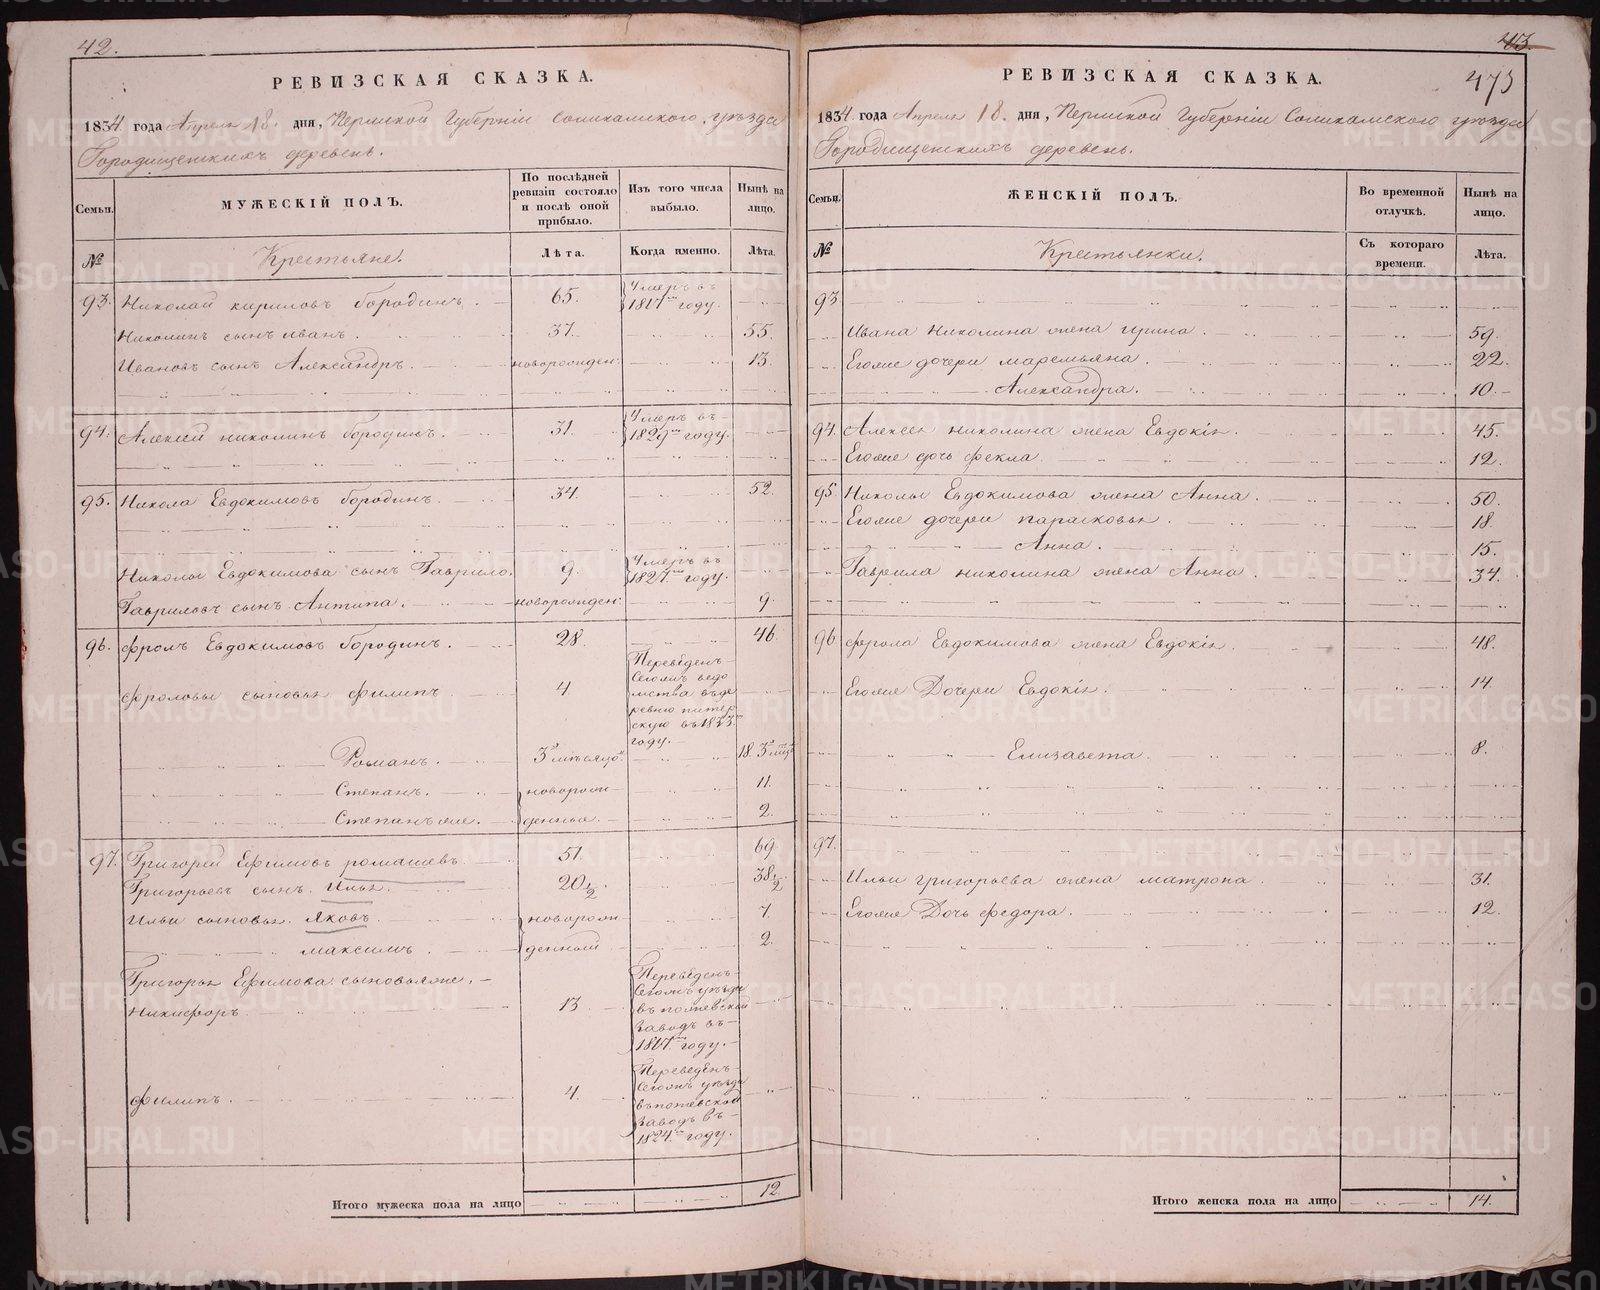 42.
РЕВИЗСКАЯ СКАЗКА.
1834 года Апреля 18. дня, Пермской Губерніи Соликамского уѣзда
Городищенскихъ деревень.
Семьи. МУЖЕСКІЙ ПОЛЪ. По послѣдней ревизіи состояло и послѣ оной прибыло. Изъ того числа выбыло. Нынѣ на лицо.
№ Крестьяне. Лѣта. Когда именно. Лѣта.
93. Николай кириловъ бородинъ. 65. Умеръ въ 1817мъ году.
Николинъ сынъ иванъ. 37. 55.
Ивановъ сынъ Александръ. новорожден: 13.
94. Алексей николинъ бородинъ. 31. Умеръ въ 1829мъ году.
95. Никола Евдокимовъ бородинъ. 34. 52.
Николы Евдокимова сынъ Гаврило. 9. Умеръ въ 1827мъ году.
Гавриловъ сынъ Антипа. новорожден: 9.
96. фролъ Евдокимовъ бородинъ. 28. 46.
фроловы сыновья филипъ. 4
Переведенъ
Сегожъ ведо
мства въде
ревню питер
скую въ 1833мъ
году.
Романъ. 3хъ месяцо. 18. 3хъ
Степанъ. новорож 11.
Степанъ же. денныя. 2.
97. Григорей Ефимовъ ромашевъ. 51. 69.
Григорьевъ сынъ. Илья. 20 1/2. 38 1/2
Ильи сыновья. Яковъ. новорож 7.
максимъ. денный 2.
Григорья Ефимова сыновьяже.
Никифоръ. 13
Переведенъ
Сегожъ уѣзда
въ пожевской
Заводъ въ
1817мъ году.
филипъ. 4.
Переведенъ
Сегожъ уѣзда
въпожевской
Заводъ въ
1824мъ году.
Итого мужеска пола на лицо 12.
43.
475
РЕВИЗСКАЯ СКАЗКА.
1834 года Апреля 18. дня, Пермской Губерніи Соликамского уѣзда
Городищенскихъ деревень.
Семьи. ЖЕНСКІЙ ПОЛЪ. Во временной отлучкѣ. Нынѣ на лицо.
№ Крестьянки. Съ котораго времени. Лѣта.
93
Ивана Николина жена ирина. 59.
Егоже дочери маремьяна. 22.
Александра. 10.
94. Алексея николина жена Евдокія. 45.
Егоже дочь фекла. 12.
95 Николы Евдокимова жена Анна. 50.
Егоже дочери парасковья. 18.
Анна. 15.
Гаврила николина жена Анна. 34.
96 фрола Евдокимова жена Евдокія. 48.
Егоже Дочери Евдокія. 14
Елизавета. 8.
97.
Ильи григорьева жена матрона. 31.
Егоже Дочь федора. 12.
Итого женска пола на лицо 14.
METRIKI.GASO-URAL.RU